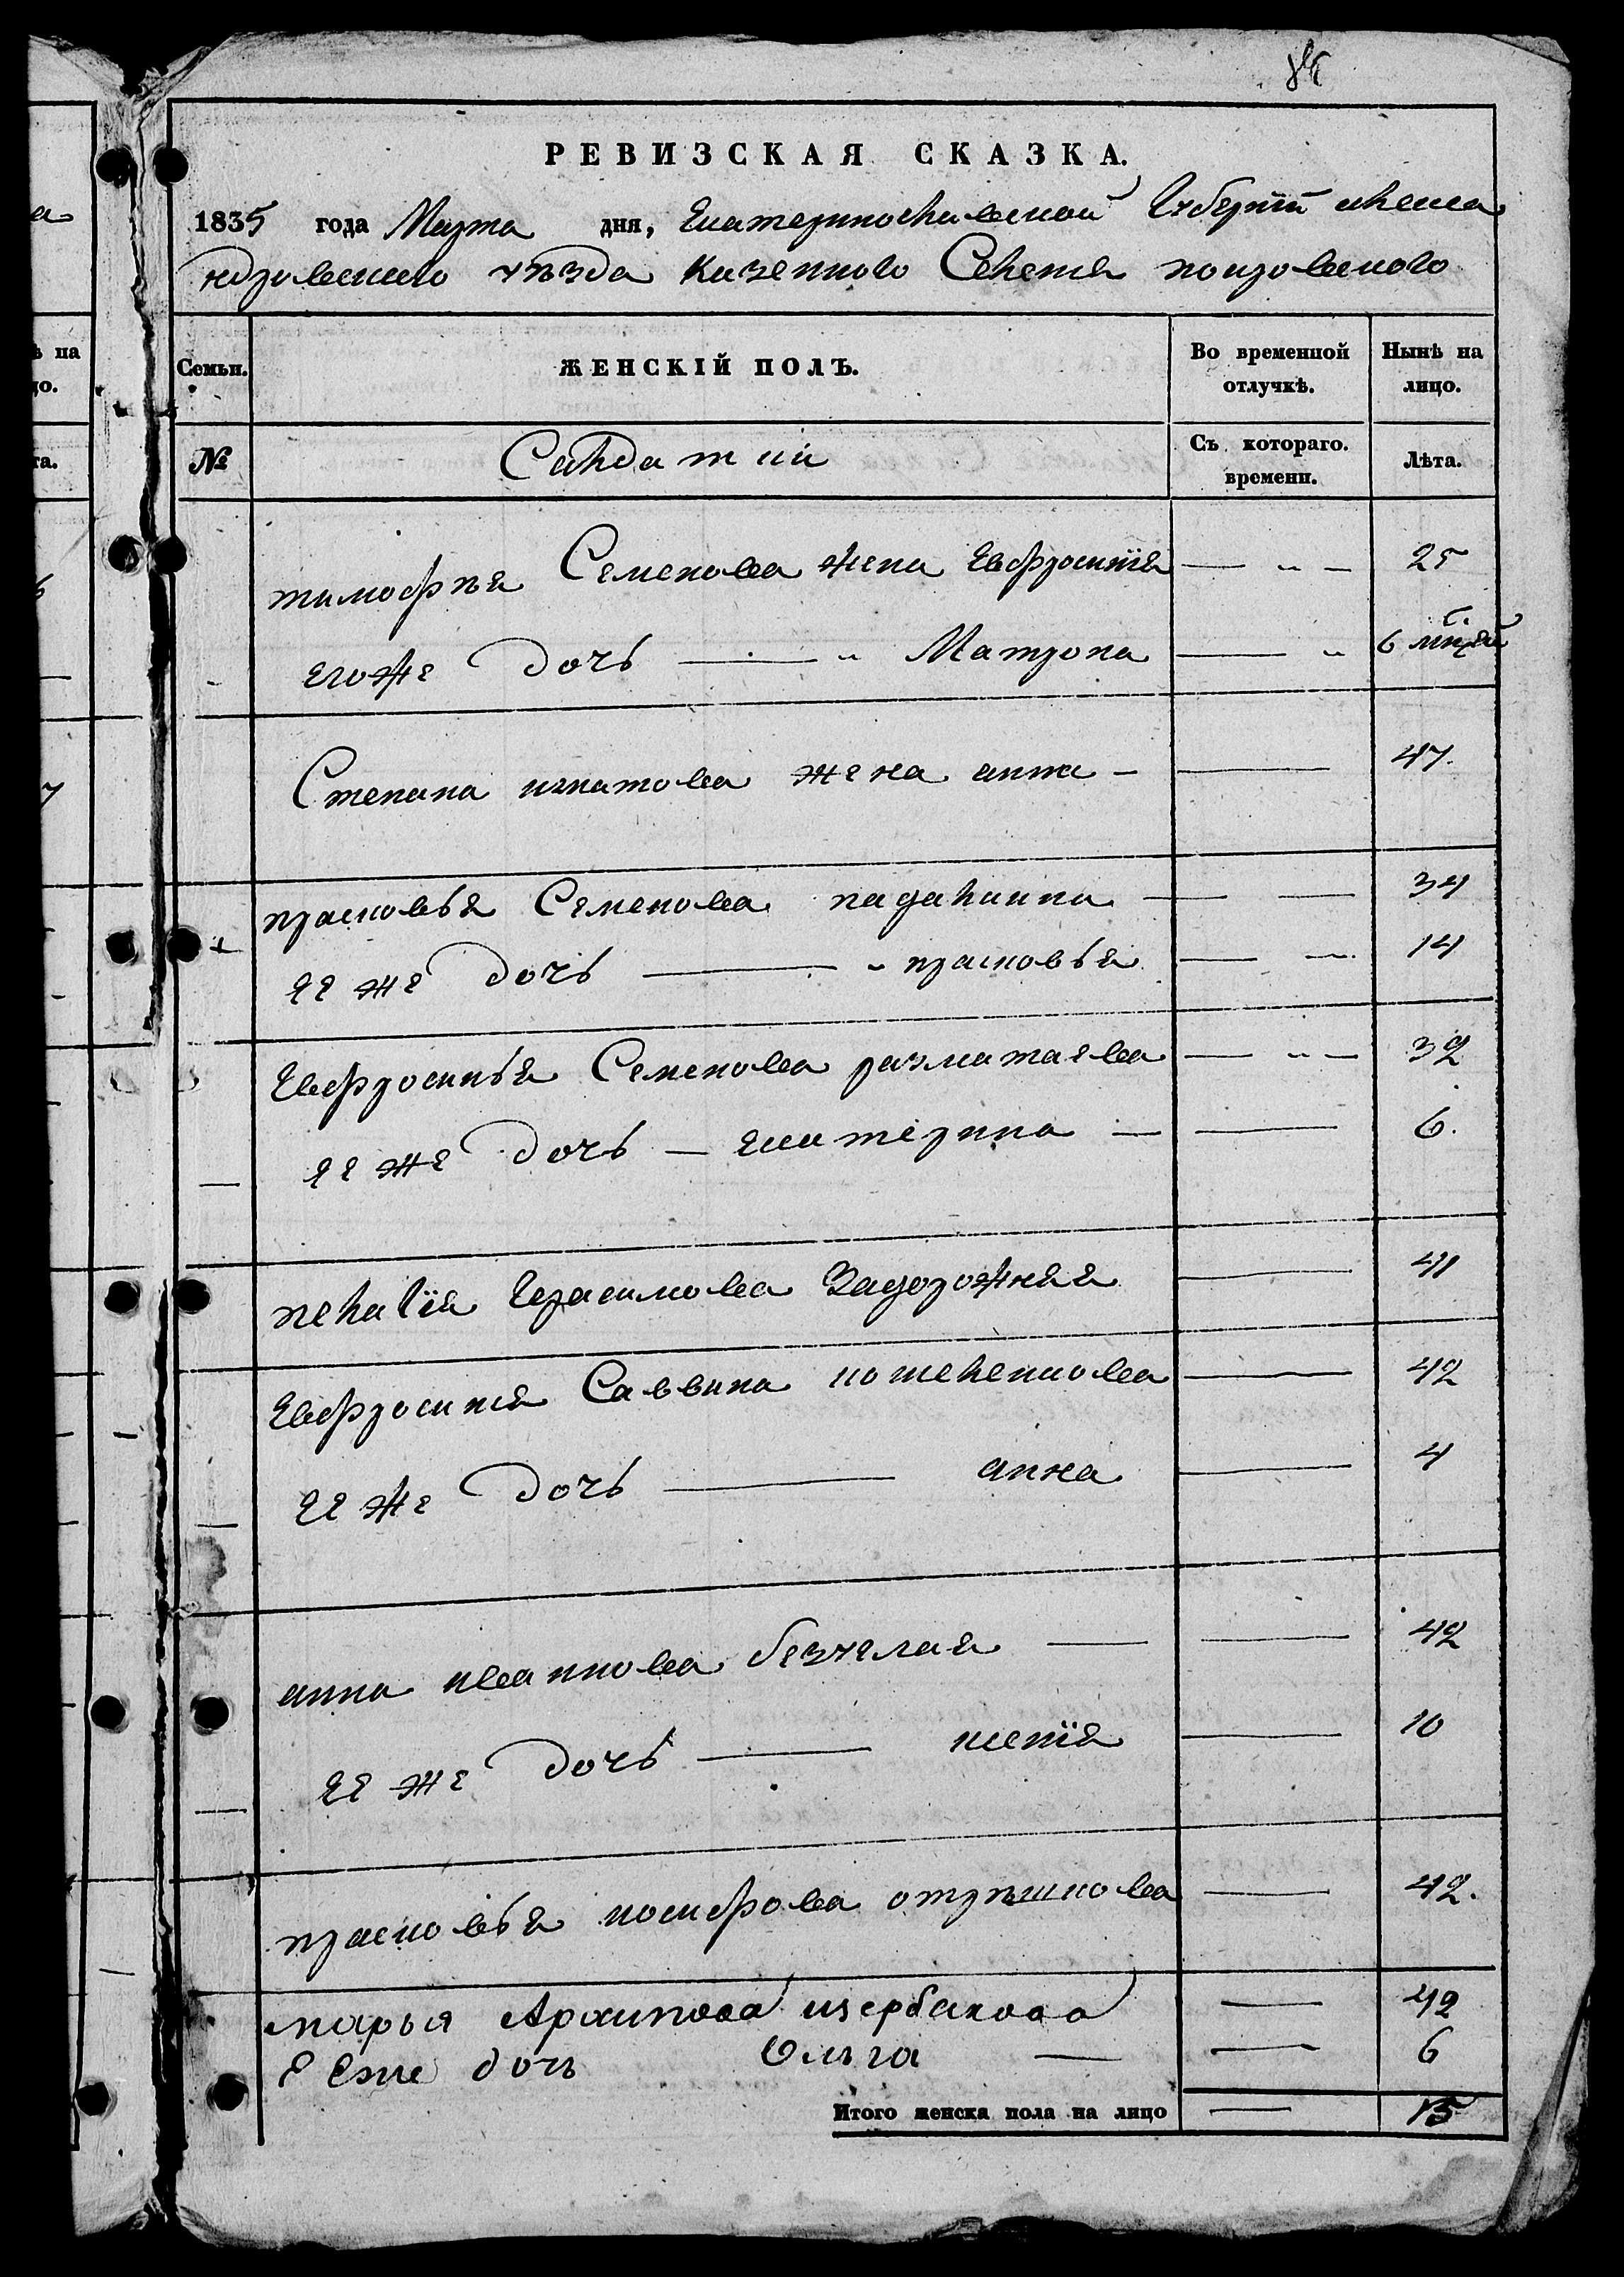 РЕВИЗСКАЯ СКАЗКА.
1835 года Марта дня, Екатеринославской Губернїи алекса
ндровскаго уѣзда казенного Селенїя покровского
Семьи.
ЖЕНСКІЙ ПОЛЪ.
Во временной отлучкѣ.
Нынѣ на лицо.
№
Салдатки
Съ котораго. времени.
Лѣта.
тимофѣя Семенова жена Евфросинїя — „ — 25
егоже дочь — „ Матрона — „ 6 мцей
Степана игнатова жена анна — — 47.
прасковья Семенова — — 34
ее же дочь — „ прасковья — — 14
Евфросинья Семенова разматаева — „ — 32
ее же дочь — екатерина — — 6.
пелагїя Герасимова Задорожняя — 41
Евфросиния Саввина котеленкова — 42
ее же дочь — анна — 4
анна иванова — — 42
ее же дочь — ксенїя — 10
прасковья иосифова отрѣшкова — 42.
марья Архипова щербакова — 42
Ееже дочь Ольга — — 6
Итого женска пола на лицо — 15